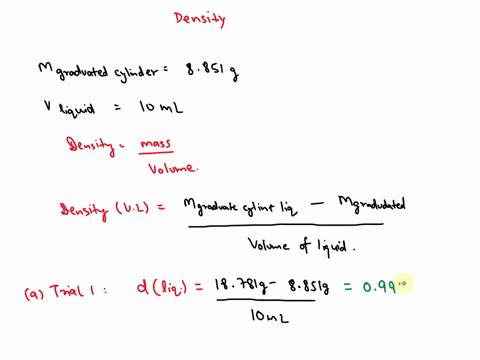 Density
M graduated cylinder = 8.851 g
V liquid = 10 mL
Density = mass / Volume.
Density (U.L) = Mgraduate cylint liq — Mgradudated / Volume of liquid.
(a) Trial 1 : d (liq.) = 18.781g - 8.851g / 10mL = 0.99